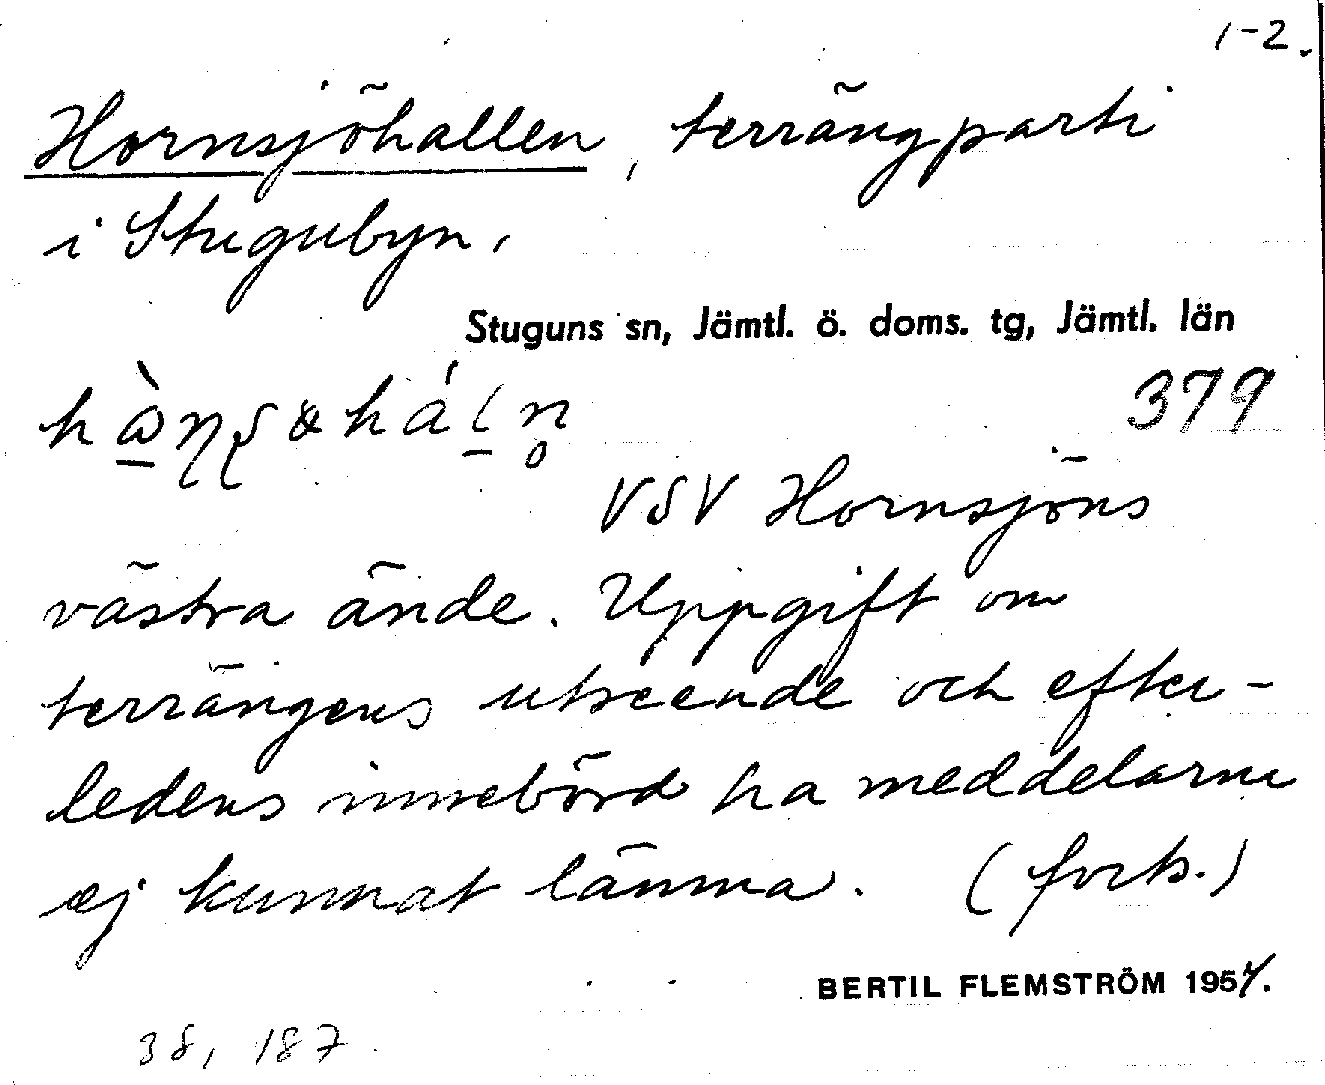 1-2.
Hornsjöhallen, terrängparti
i Stugubyn,
Stuguns sn, Jämtl. ö. doms. tg, Jämtl. län
379
VSV Hornsjöns
västra ände. Uppgift om
terrängens utseende och efter-
ledens innebörd ha meddelarne
ej kunnat lämna. (forts.)
BERTIL FLEMSTRÖM 1954.
38, 187